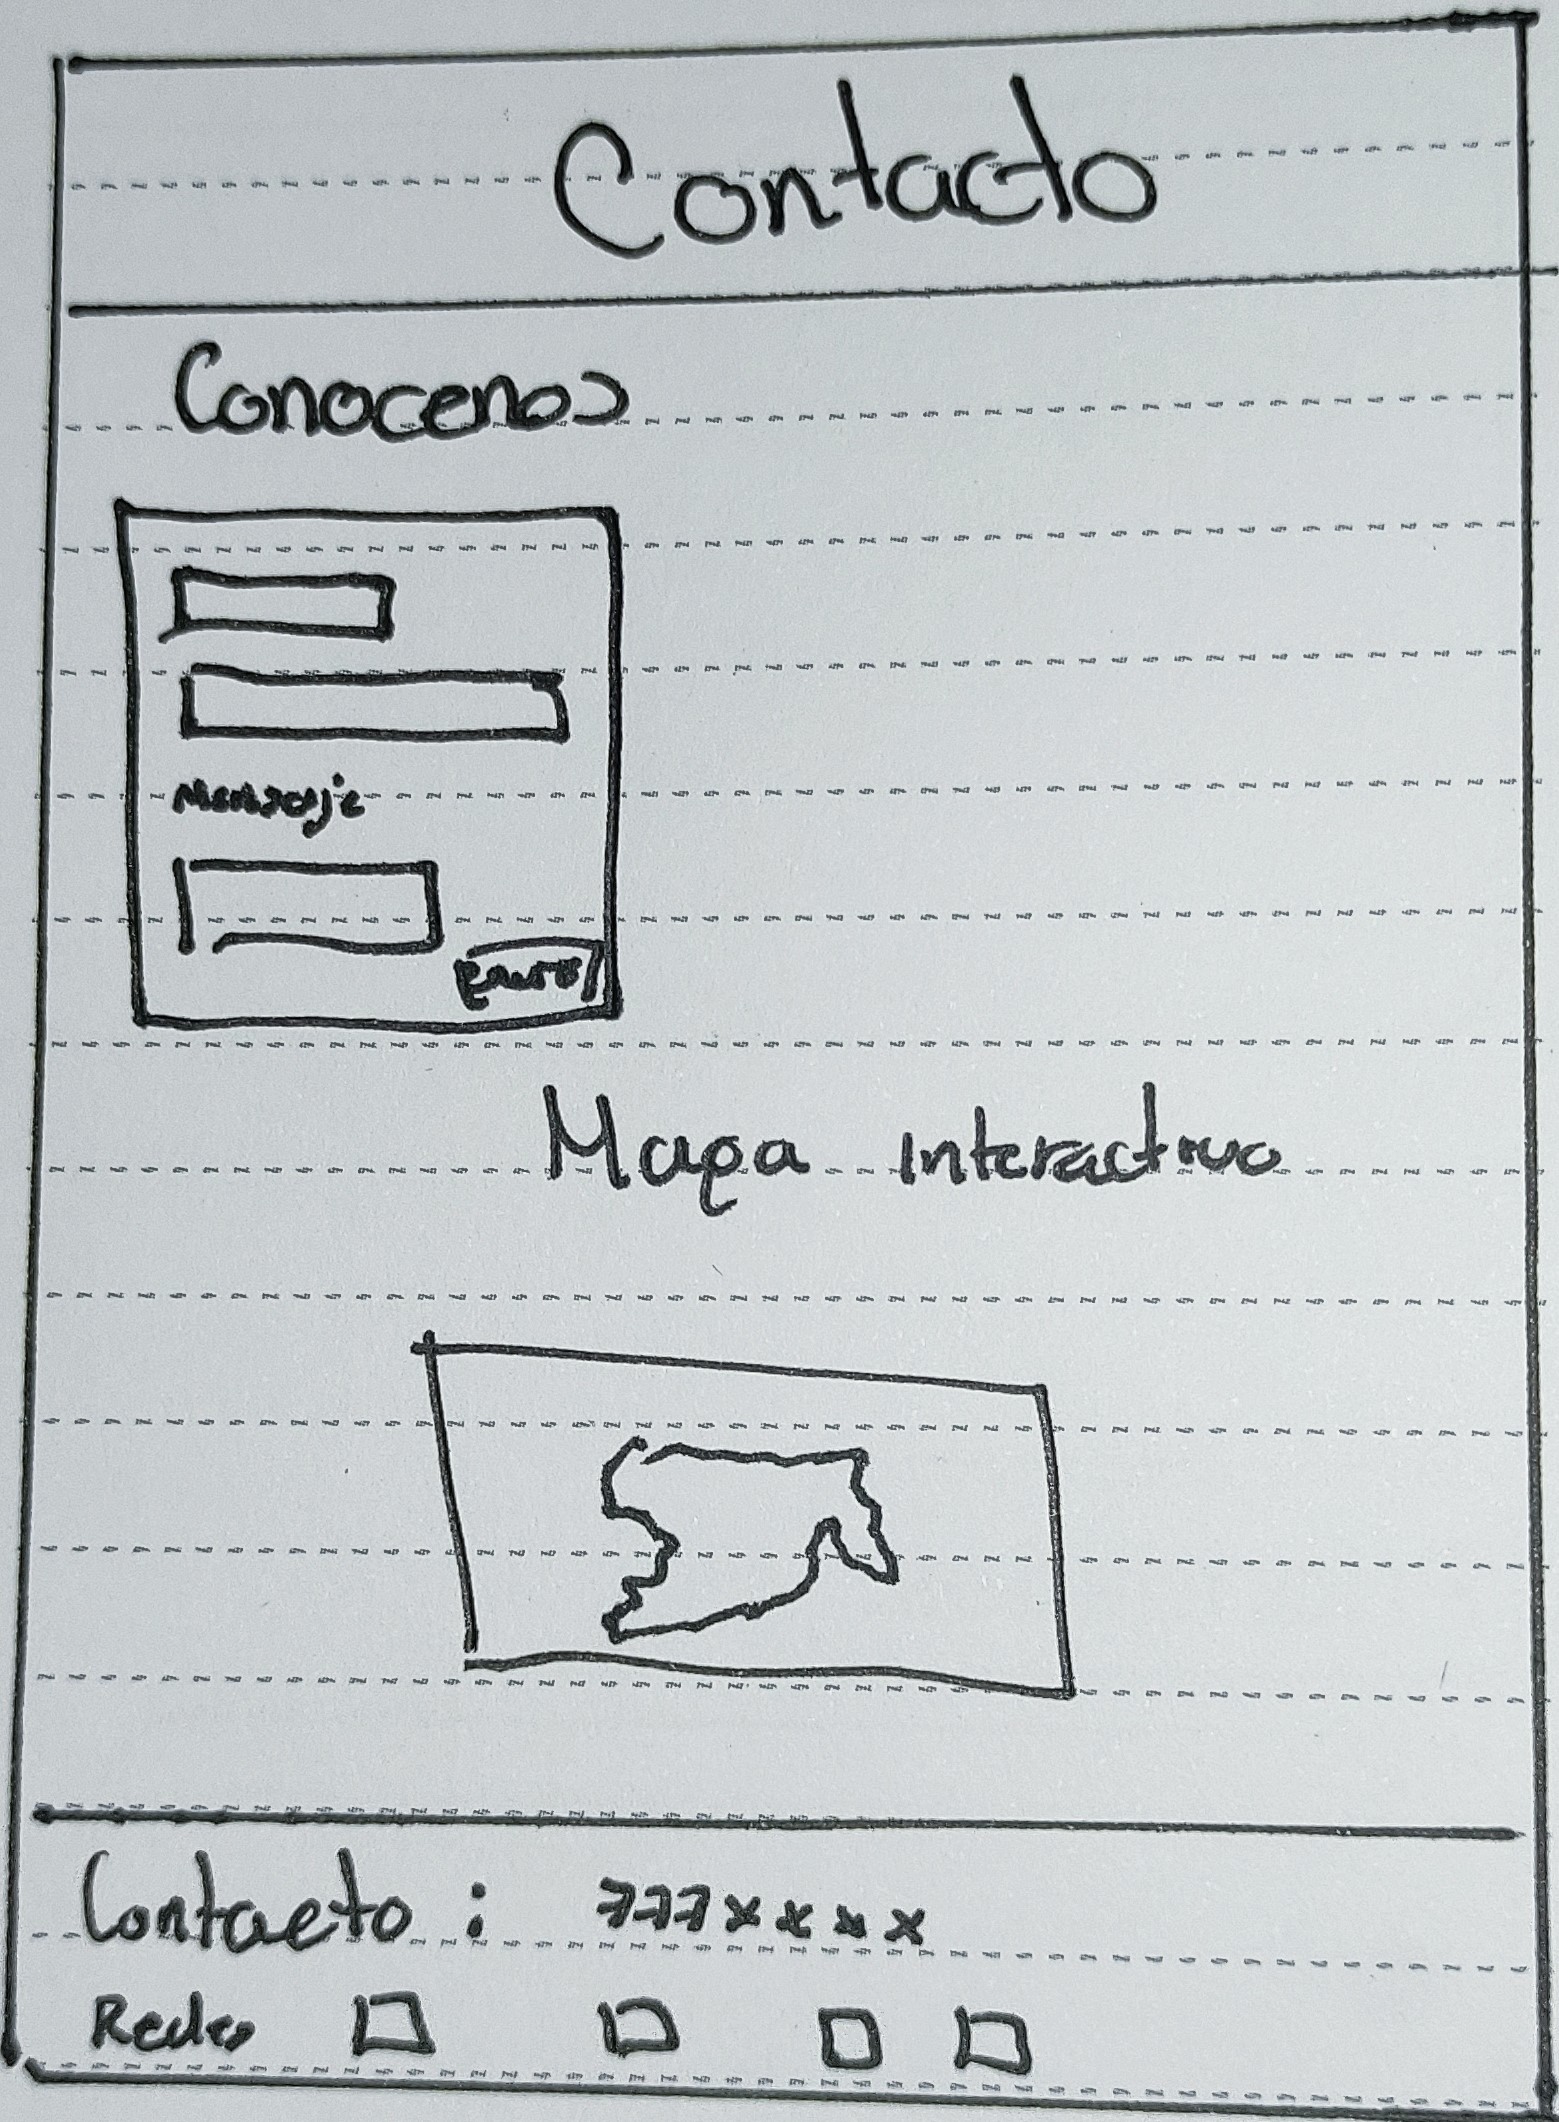 Contacto
Conocenos
Mensaje
Enviar
Mapa interactivo
Contacto : 777xxxx
Redes